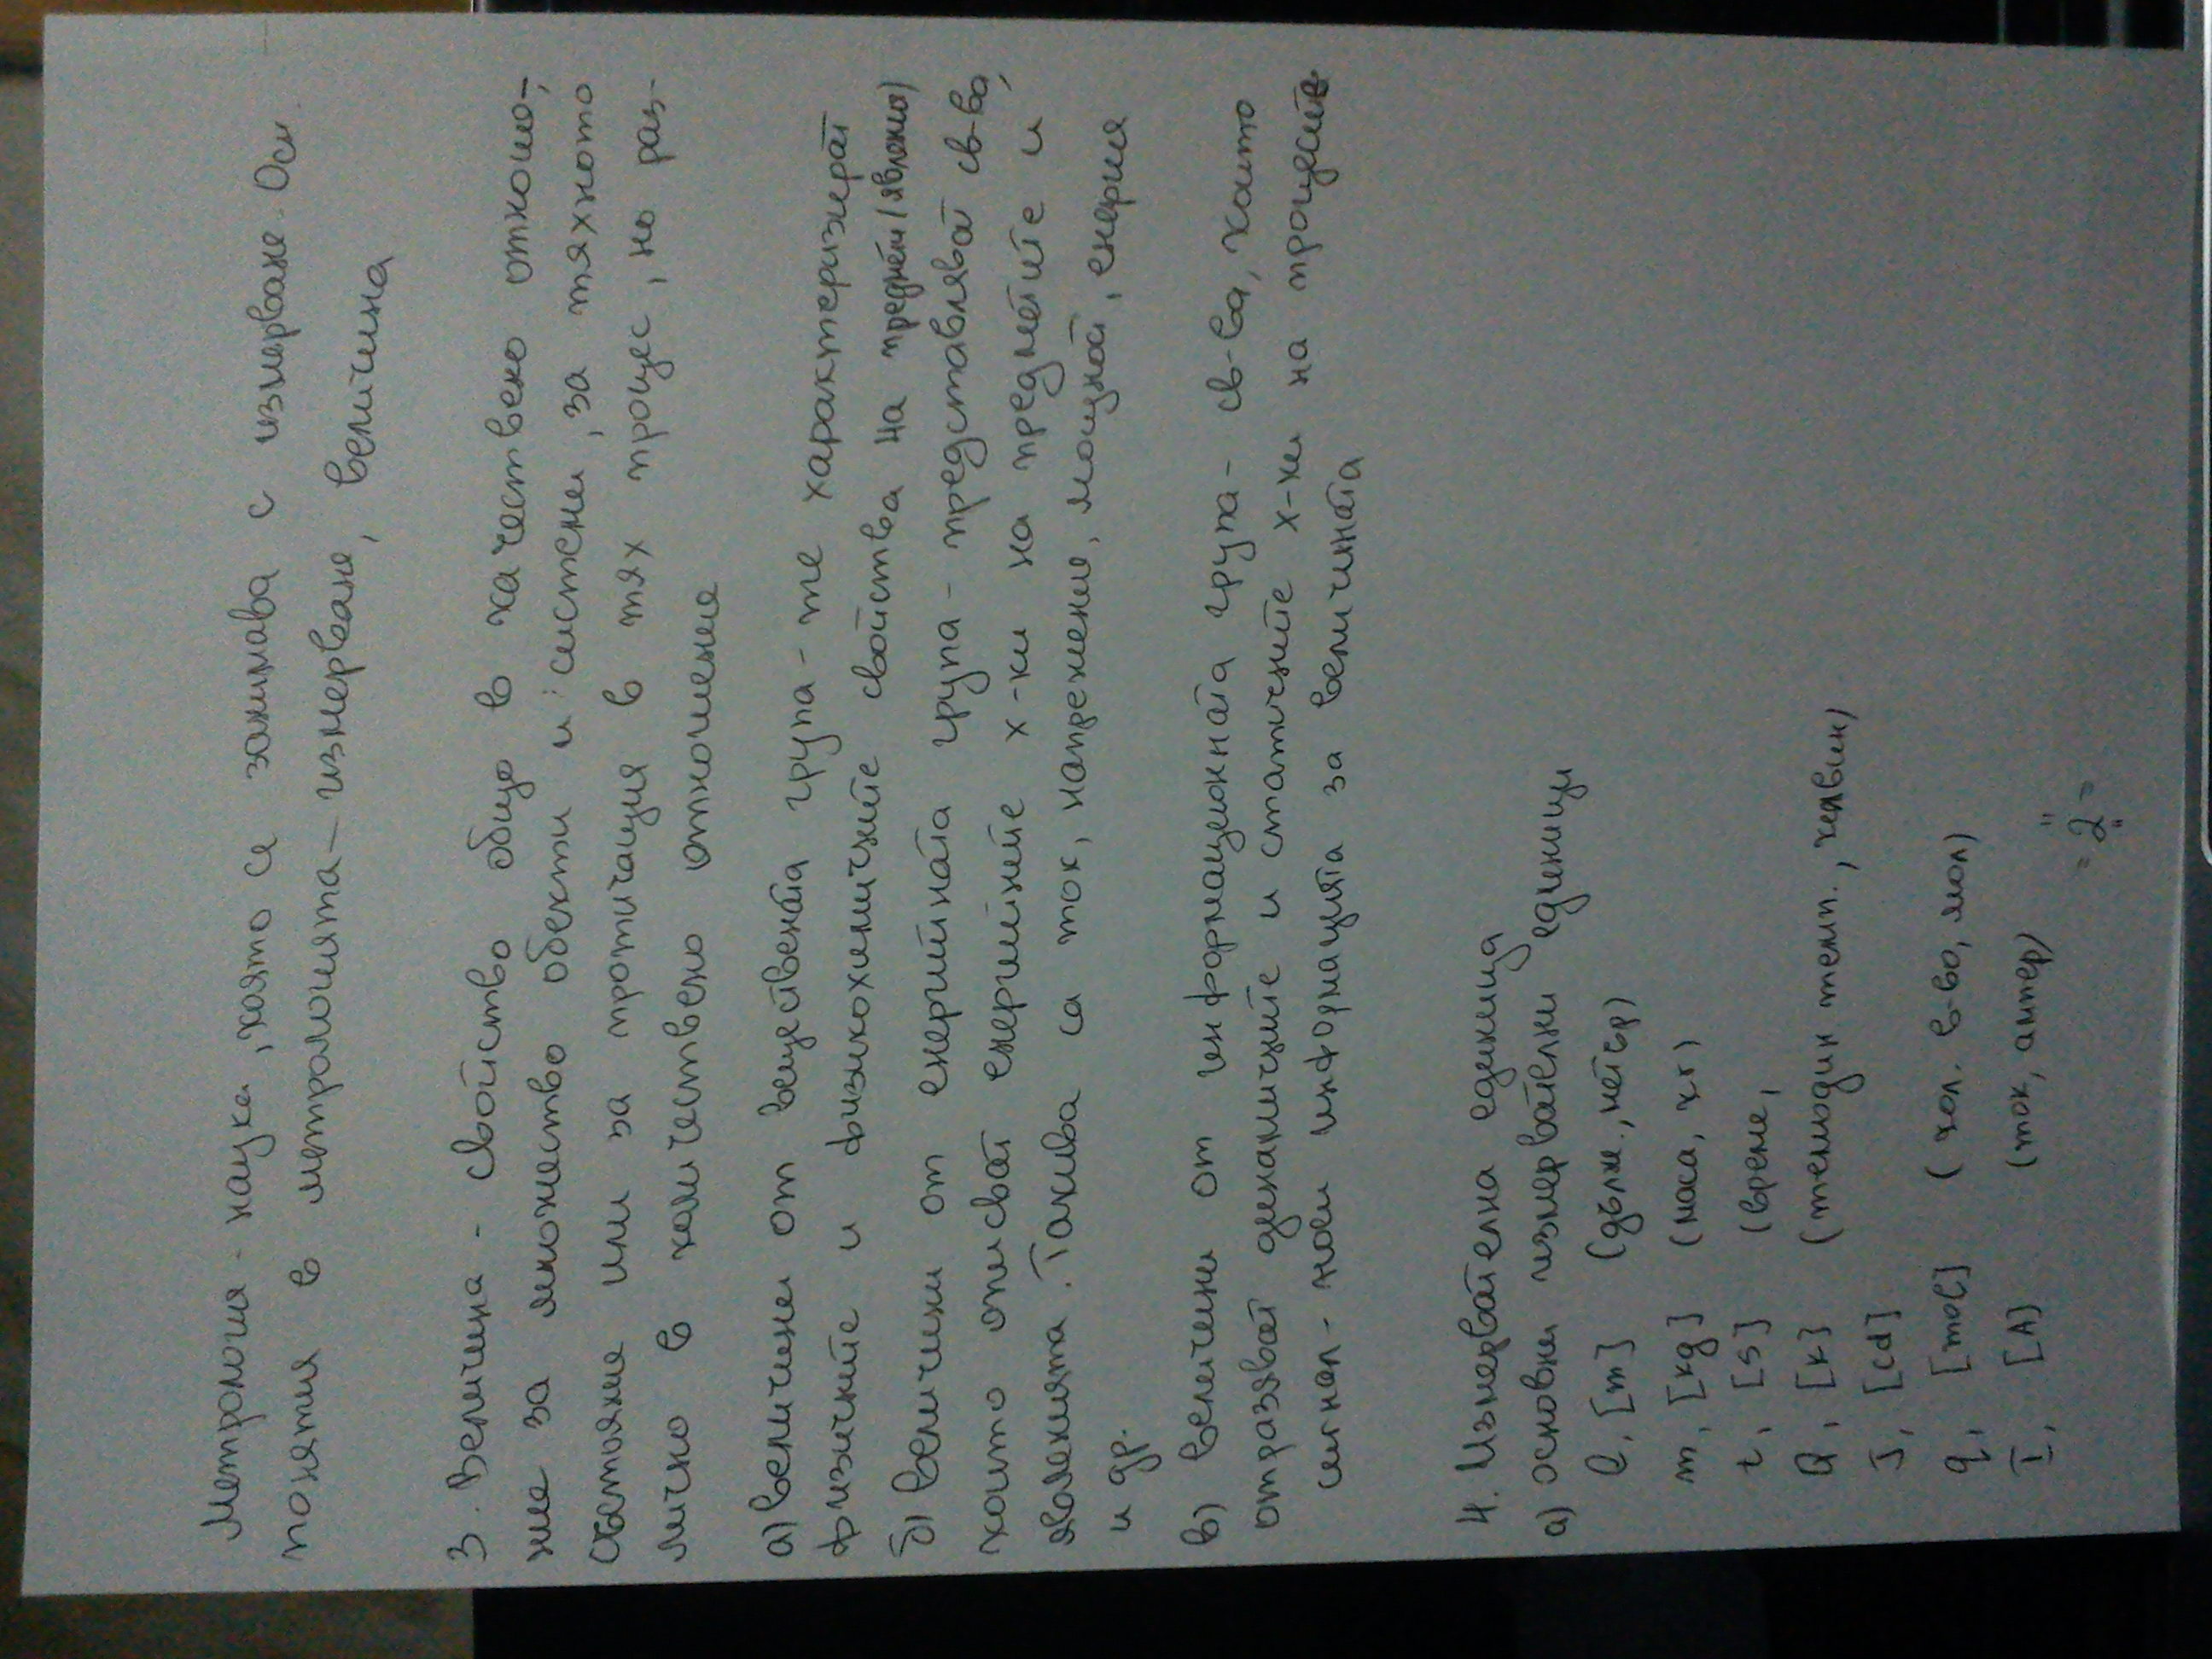 Метрология - наука, която се занимава с измерване. Осн.
понятия в метрологията - измерване, величина
3. Величина - свойство общо в качествено отноше-
ние за множество обекти и системи, за тяхното
състояние или за протичащия в тях процес, но раз-
лично в количествено отношение
а) величини от веществената група - те характеризират
физичните и физикохимичните свойства на предмети (явления)
б) величини от енергийната група - представляват св-ва,
които описват енергийните х-ки на предметите и
явленията. Такива са ток, напрежение, мощност, енергия
и др.
в) величини от информационната група - св-ва, които
отразяват динамичните и статичните х-ки на процесите
сигнал - носи информацията за величината
4. Измервателна единица
а) основни измервателни единици
l, [m] (дълж., метър)
m, [kg] (маса, кг)
t, [s] (време,
Q, [K] (темодин темп., келвин)
J, [cd]
q, [mol] (кол. в-во, мол)
I, [A] (ток, ампер)
= 2 =